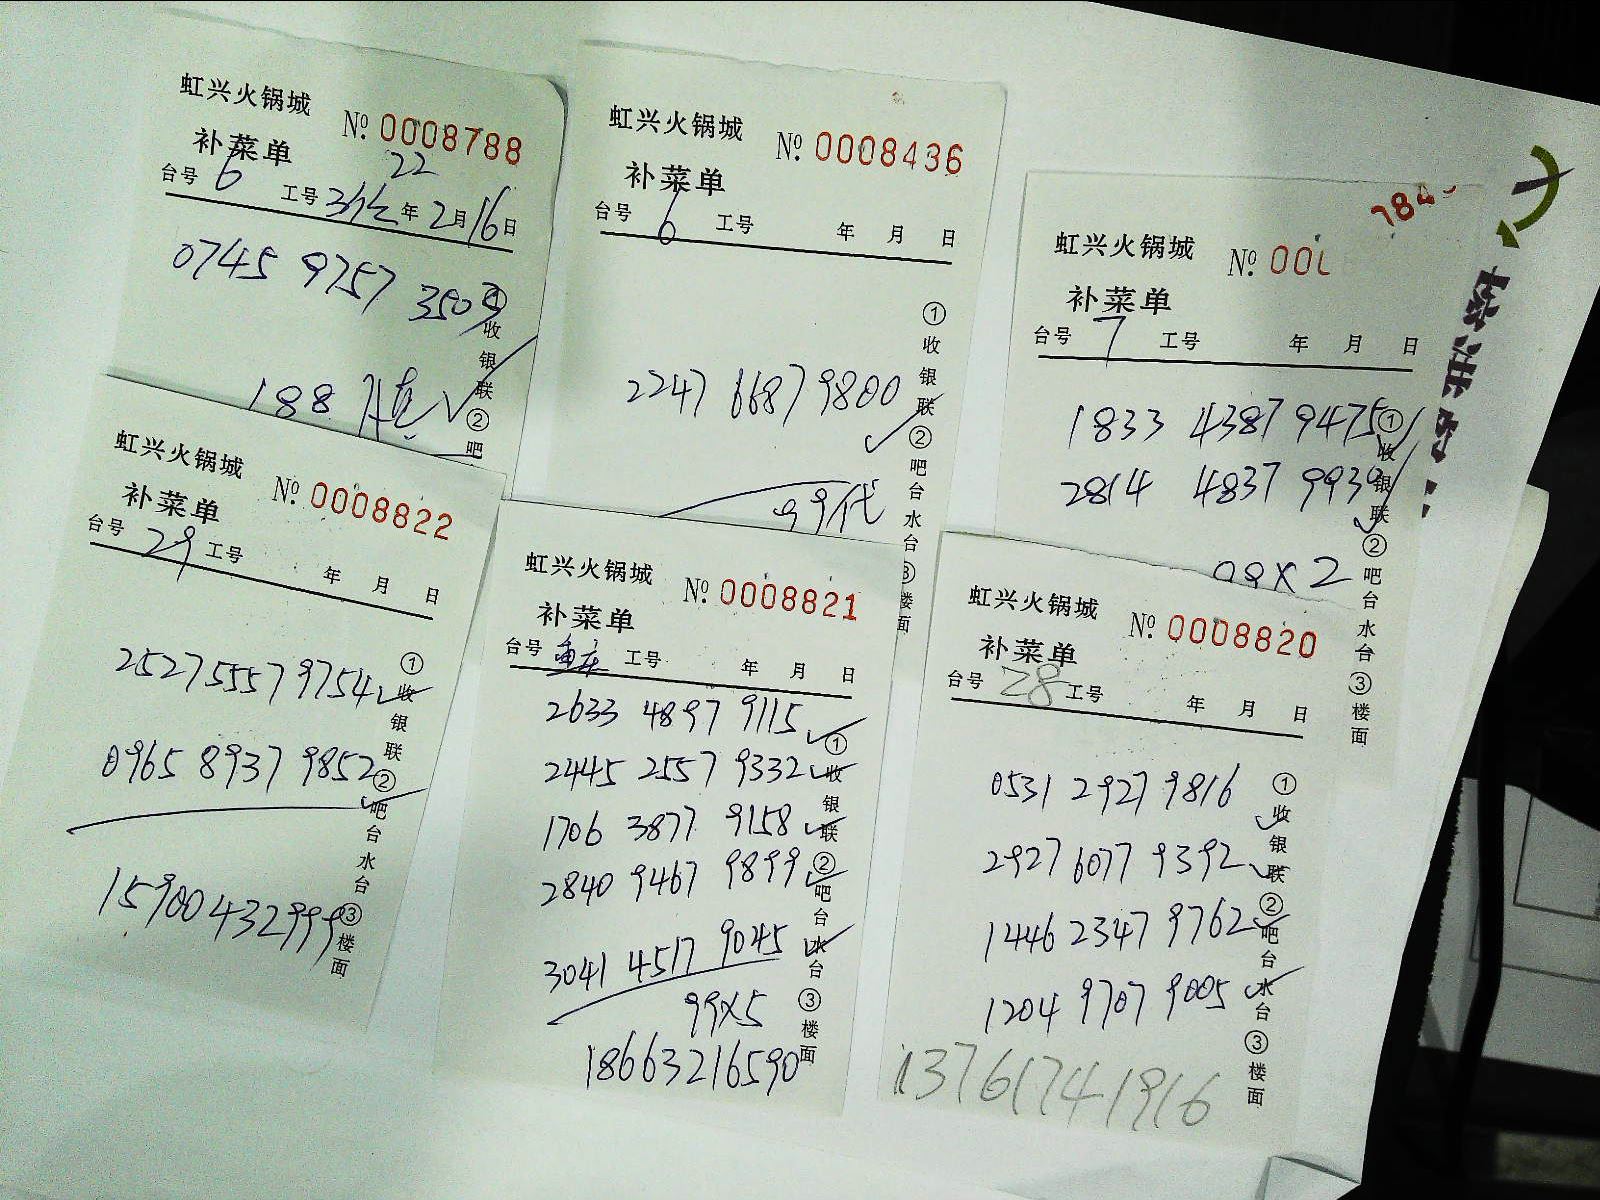 虹兴火锅城 No 0008788
补菜单 22
台号 6 工号 年 2月16日
0745 9757 3503
188
①收银联②吧
虹兴火锅城 No 0008436
补菜单
台号 6 工号 年 月 日
2247 6687 9800
99代
①收银联②吧台水台③楼面
784
虹兴火锅城 No 000
补菜单
台号 7 工号 年 月 日
1833 4387 9475
2814 4837 9939
98X2
①收银联②吧台水台③楼面
虹兴火锅城 No 0008822
补菜单
台号 29 工号 年 月 日
2527 5557 9754
0965 8937 9852
15900432999
①收银联②吧台水台③楼面
虹兴火锅城 No 0008821
补菜单
台号 重庆 工号 年 月 日
2633 4897 9115
2445 2557 9332
1706 3877 9158
2840 9467 9899
3041 4517 9045
99X5
18663216590
①收银联②吧台水台③楼面
虹兴火锅城 No 0008820
补菜单
台号 28 工号 年 月 日
0531 2927 9816
2927 6077 9392
1446 2347 9762
1204 9707 9005
13761741916
①收银联②吧台水台③楼面